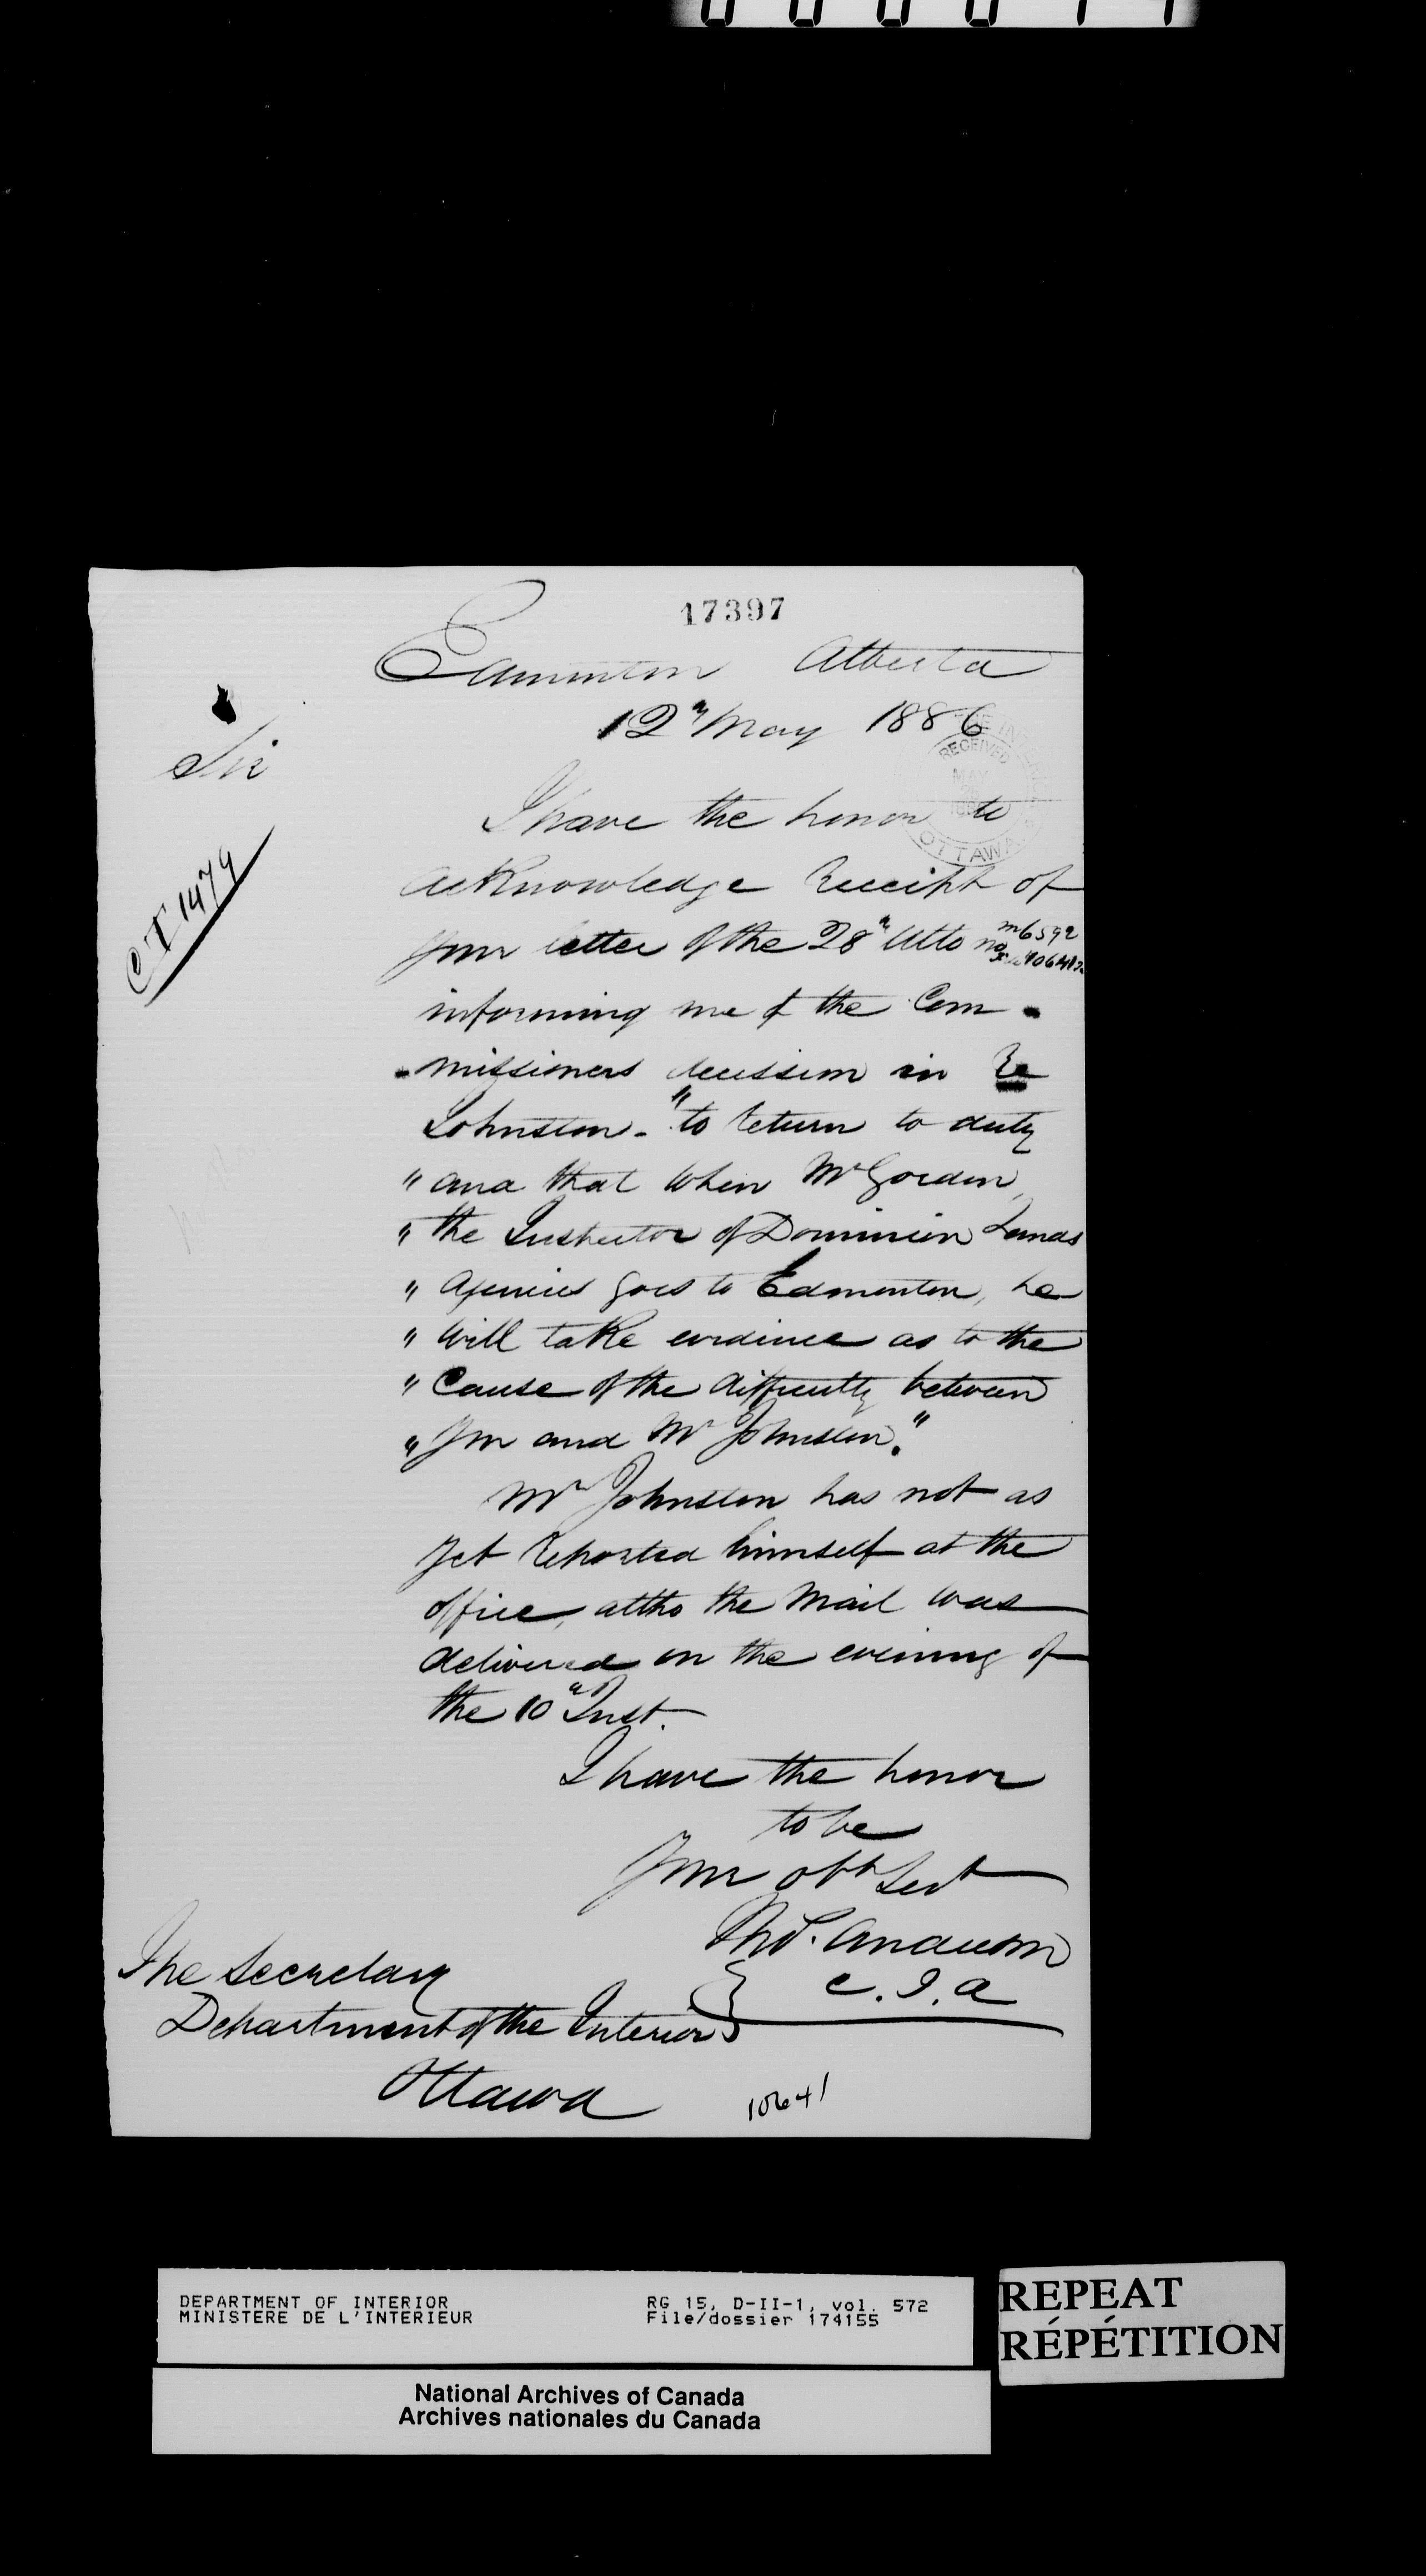 17397
Edmonton Alberta
12" May 1886
RECEIVED
MAY
OTTAWA
Sir
I have the honor to
acknowledge receipt of
your letter of the 28" Ulto no
m6592
informing me of the Com -
- missioners decission in Re
Johnston - "to return to duty
" and that when Mr Gordon,
" the Inspector of Dominion Lands
" Agencies goes to Edmonton, he
" will take evidence as to the
" Cause of the difficulty between
" you and Mr Johnston."
Mr Johnston has not as
yet reported himself at the
office, altho the mail was
delivered on the evening of
the 10" Inst.
I have the honor
to be
Your obt Sert
Thos. Anderson
C.I.A
CT 1479
The Secretary
Department of the Interior
Ottawa
10641
DEPARTMENT OF INTERIOR
MINISTERE DE L'INTERIEUR
RG 15, D-II-1, vol. 572
File/dossier 174155
REPEAT
RÉPÉTITION
National Archives of Canada
Archives nationales du Canada